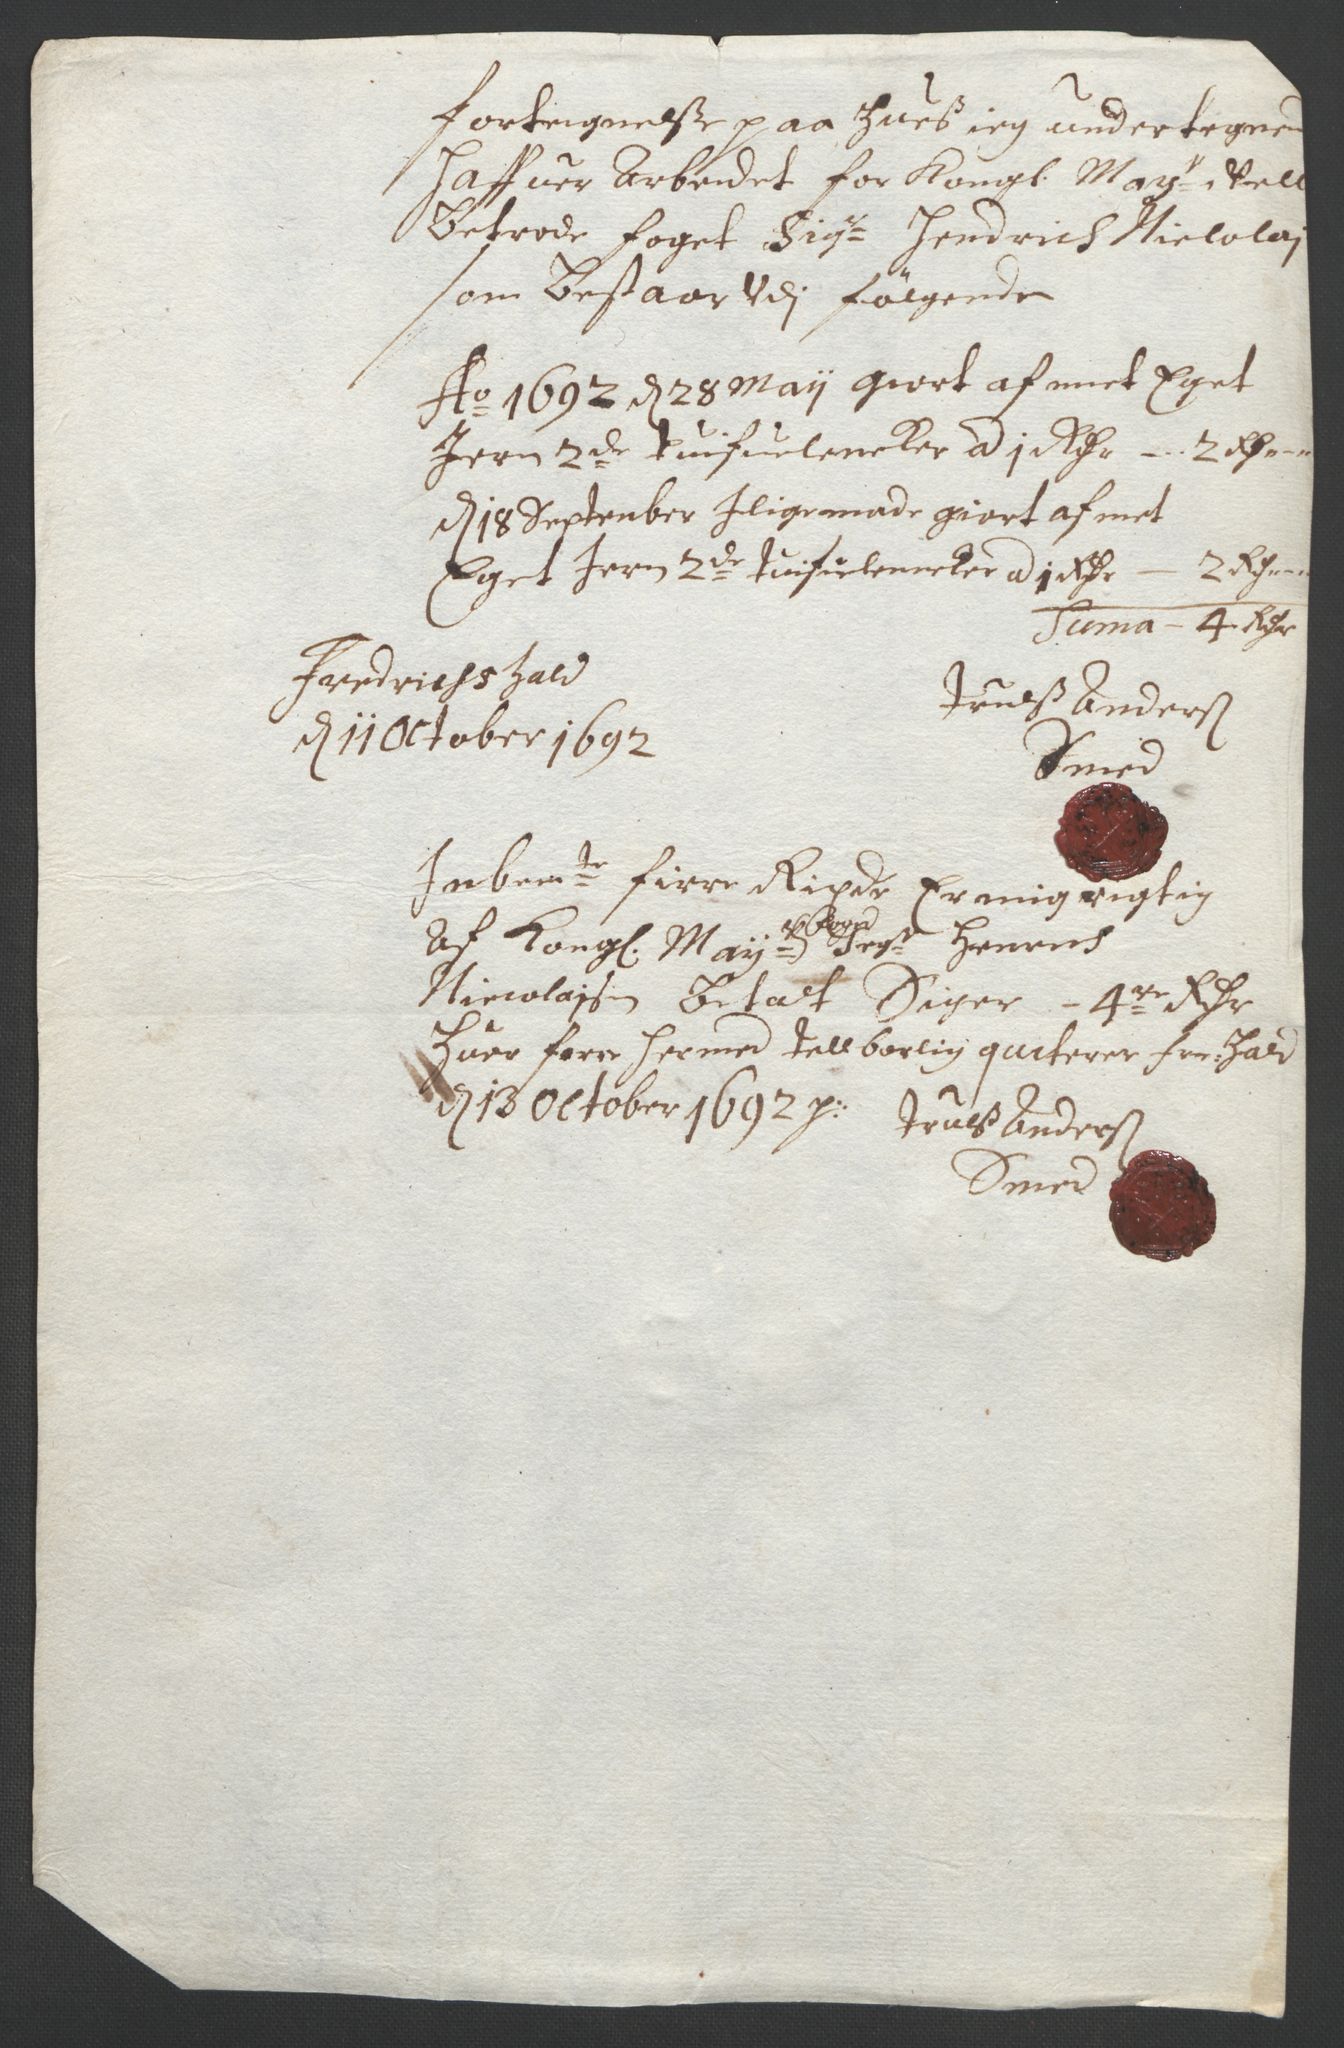 Forteignelsse paa hues ieg undertegned
haffuer Arbeidet for Kongl. May: Vell
Betrode foget Sigr Hendrich Nicolaj
som Bestaar Vdj følgende
Ao 1692 d 28 Maij giort af met Eget
Jern 2de tuifuelencker a 1 Rdr - 2 Rdr
d 18 September Iligemade giort af met
Eget Jern 2de tuifuelencker a 1 Rdr - 2 Rdr
Suma - 4 Rdr
Fredrichs hald
d 11 October 1692
Truls Anders
Smed
Inbemte firre Rixdr Er mig rigtig
Af Kongl. May: foged Sigr Henrich
Nicolajsen Betalt Siger - 4re Rdr
huor forre hermed tellbørlig quiterer fre: Hald
d 13 October 1692 p:
Truls Anders
Smed